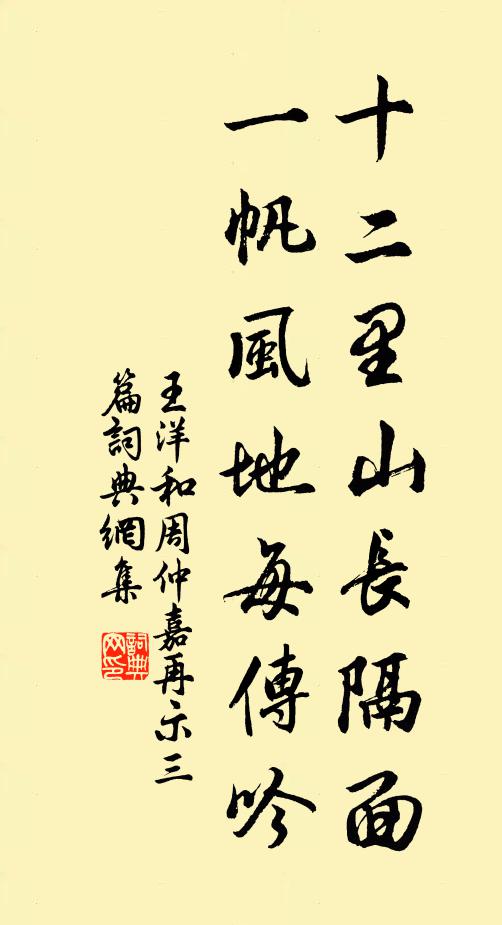 十二里山長隔面
一帆風地每傳吟
王洋和周仲嘉再示三
篇詞典網集
詞典
网印